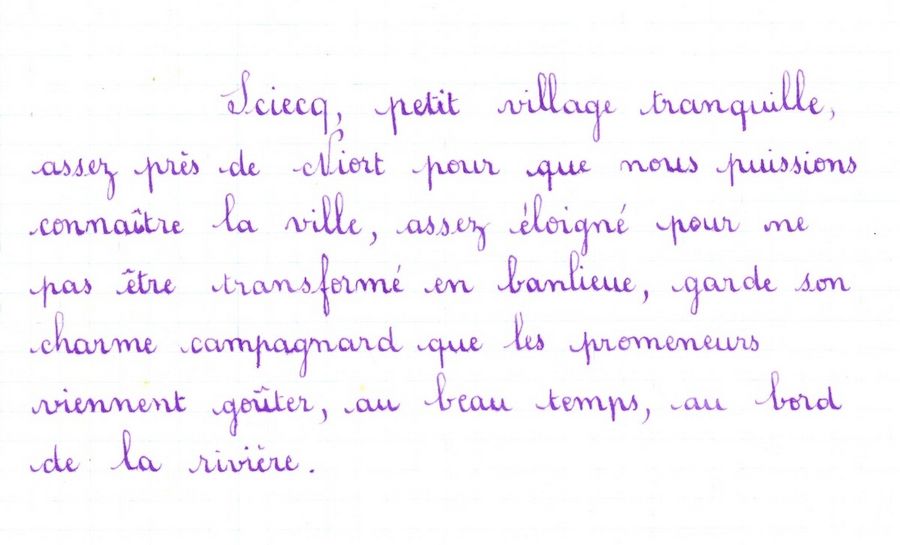 Sciecq, petit village tranquille,
assez près de Niort pour que nous puissions
connaître la ville, assez éloigné pour ne
pas être transformé en banlieue, garde son
charme campagnard que les promeneurs
viennent goûter, au beau temps, au bord
de la rivière.